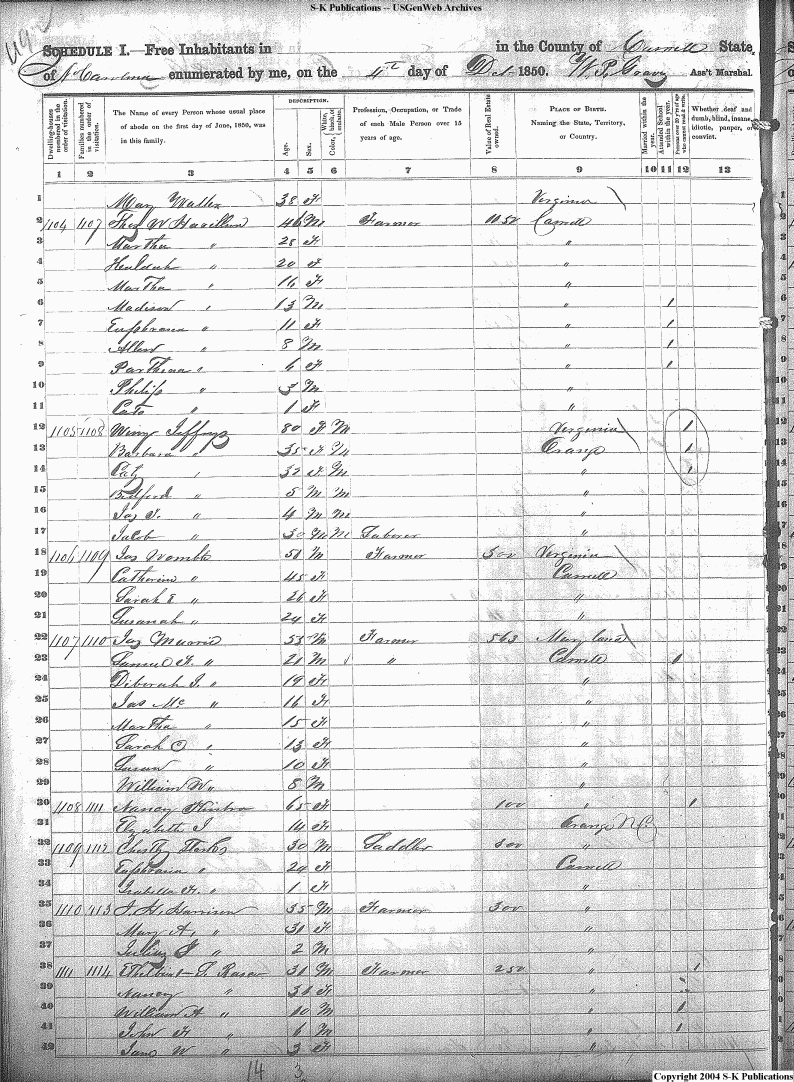 S-K Publications -- USGenWeb Archives
SCHEDULE I.—Free Inhabitants in in the County of Caswell State
of N Carolina enumerated by me, on the 4th day of Oct 1850. Ass't Marshal.
DESCRIPTION.
Dwelling-houses numbered in the order of visitation.
Families numbered in the order of visitation.
The Name of every Person whose usual place of abode on the first day of June, 1850, was in this family.
Age.
Sex.
Color, White, black, or mulatto.
Profession, Occupation, or Trade of each Male Person over 15 years of age.
Value of Real Estate owned.
PLACE OF BIRTH. Naming the State, Territory, or Country.
Married within the year.
Attended School within the year.
Persons over 20 y'rs of age who cannot read & write.
Whether deaf and dumb, blind, insane, idiotic, pauper, or convict.
1 2 3 4 5 6 7 8 9 10 11 12 13
1 Mary 38 F Virginia
2 1104 1107 Thos W 46 M Farmer 1050 Caswell
3 Martha " 28 F "
4 " 20 F "
5 Martha " 16 F "
6 Madison " 13 M " 1
7 " 11 F " 1
8 Allen " 8 M " 1
9 Parthena " 6 F " 1
10 Philip " 3 M "
11 " 1 F "
12 1105 1108 Winny Jeffreys 80 F M Virginia 1
13 Barbara " 35 F M Orange 1
14 " 32 F M " 1
15 Bedford " 5 M M "
16 Jas " 4 M M "
17 Jacob " 30 M M Laborer "
18 1106 1109 Jas Womble 51 M Farmer 300 Virginia
19 Catherine " 45 F Caswell
20 Sarah E " 26 F "
21 Susanah " 24 F "
22 1107 1110 Jas 55 M Farmer 563 Maryland
23 Samuel " 21 M " Caswell 1
24 Deborah J. " 19 F "
25 Jas Mc " 16 F "
26 Martha " 15 F "
27 Sarah O " 13 F "
28 Susan " 10 F "
29 William W " 8 M "
30 1108 1111 Nancy 65 F 100 " 1
31 Elizabeth J 14 F Orange NC
32 1109 1112 30 M Saddler 300 "
33 " 24 F Caswell
34 Isabella " 1 F "
35 1110 J. H. Harrison 35 M Farmer 300 "
36 Mary A, " 31 F "
37 " 2 M "
38 1111 1114 31 M Farmer 250 " 1
39 Nancy " 31 F "
40 William A " 10 M " 1
41 John " 6 M " 1
42 James W " 3 "
14 3
Copyright 2004 S-K Publications